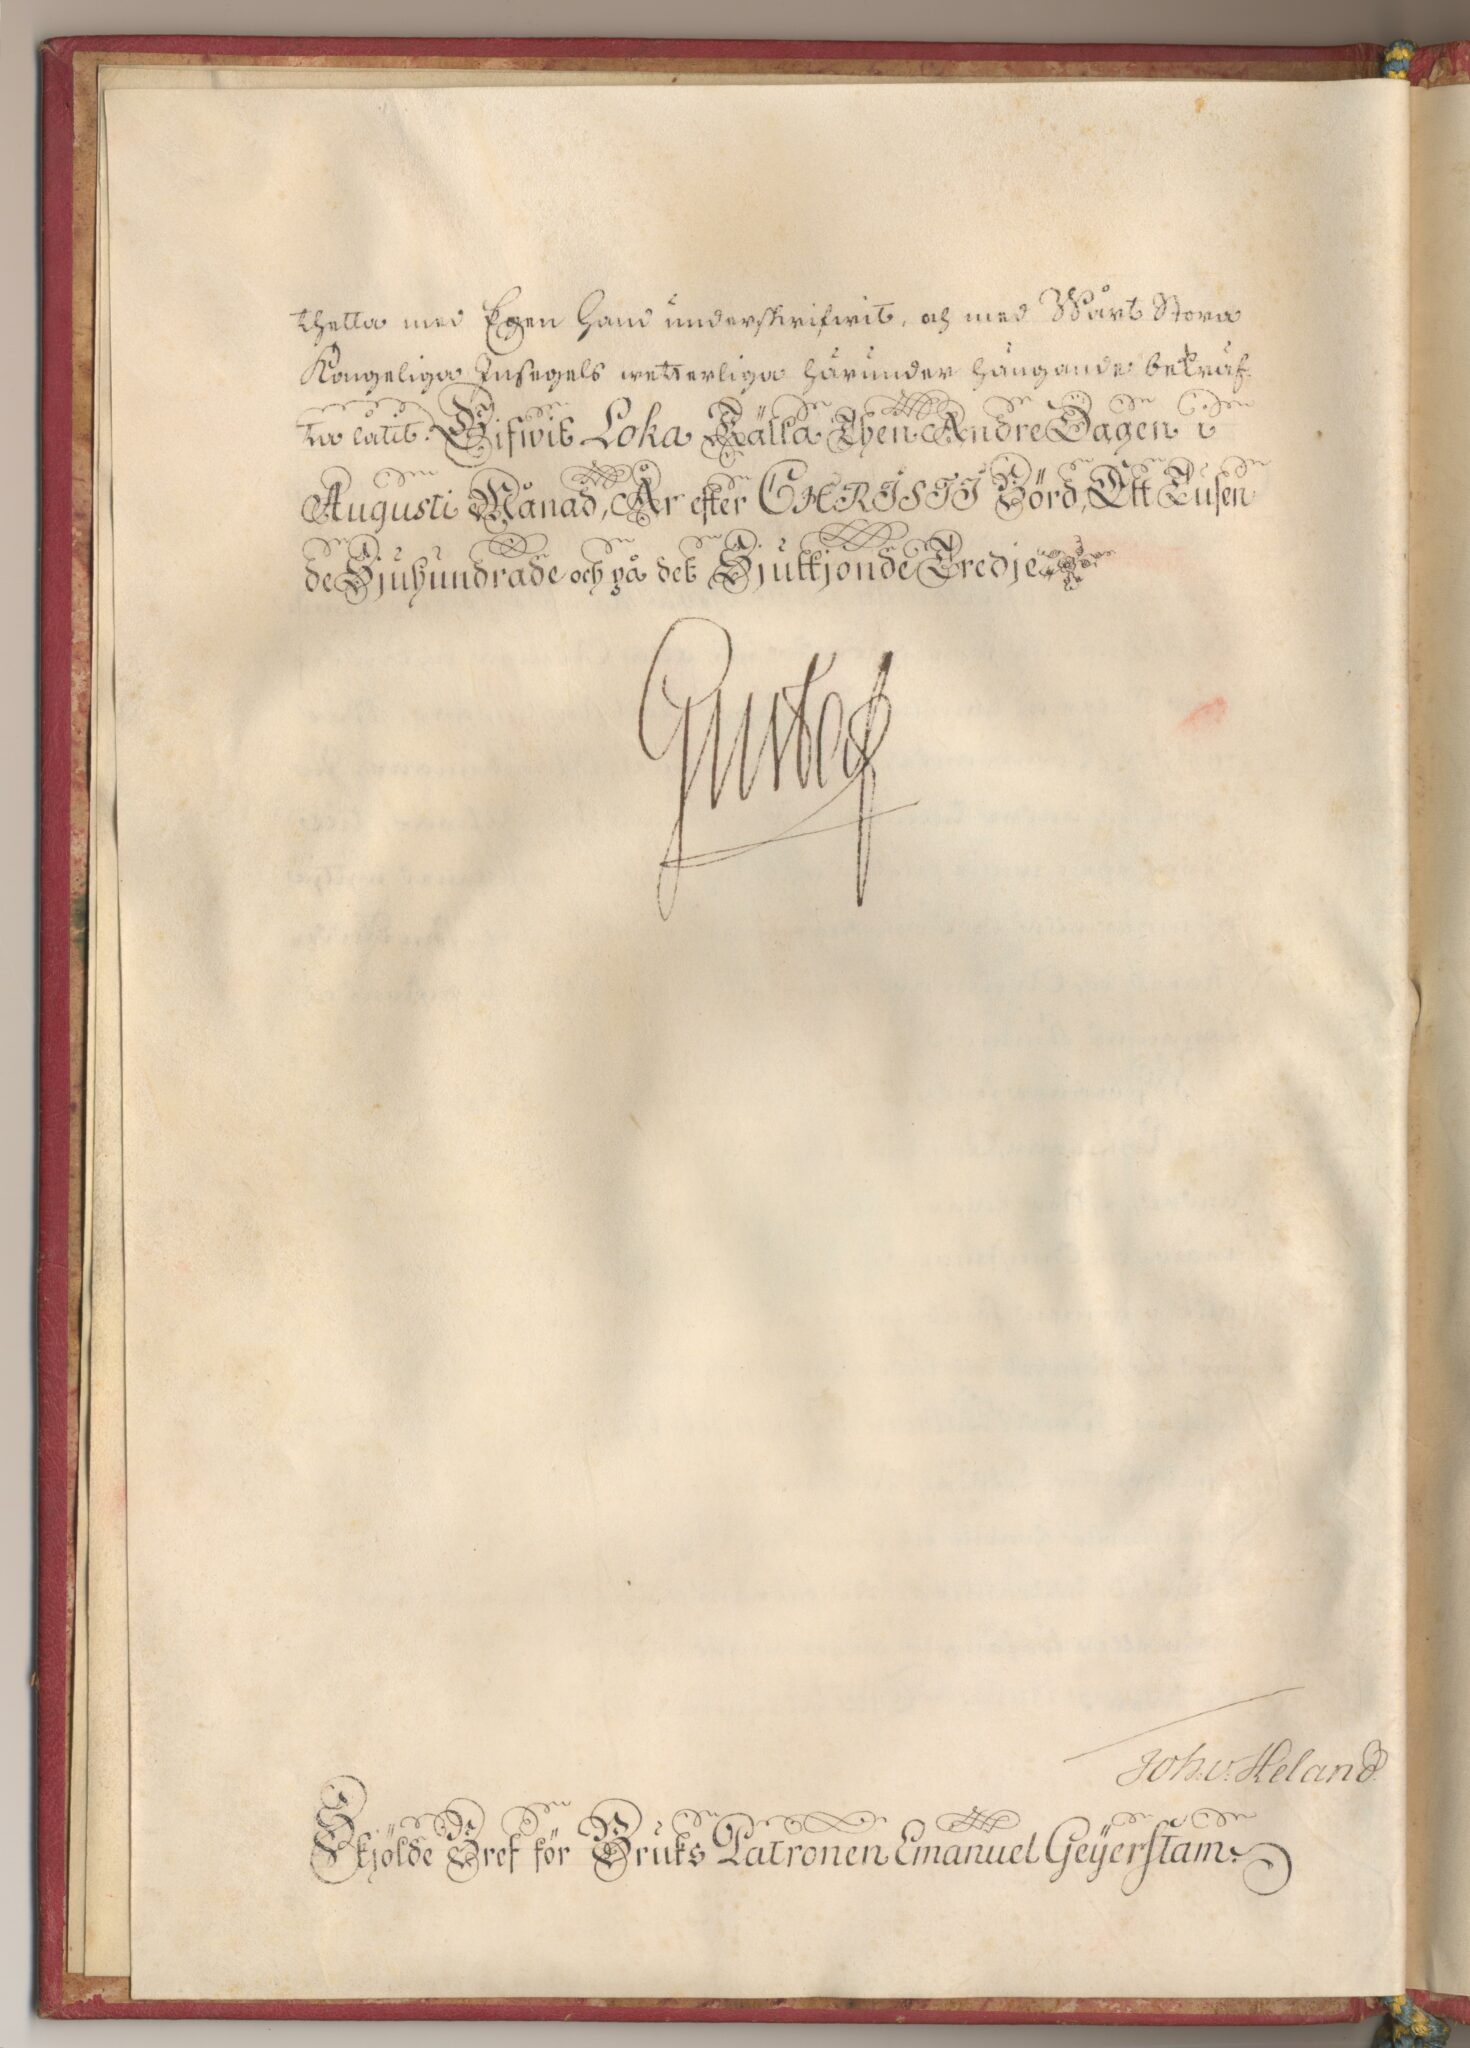 thetta med Egen Hand underskrifwit, och med Wårt Stora
Kongeliga Insegels wetterliga härunder hängande bekräf-
ta låtit. Gifwit Loka Källa Then Andre Dagen i
Augusti Månad, År efter CHRISTI Börd, Ett Tusen
de Sjuhundrade och på det Sjuttjonde Tredje
Gustaf
Joh. v. Heland
Skjölde Bref för Bruks Patronen Emanuel Geÿerstam.